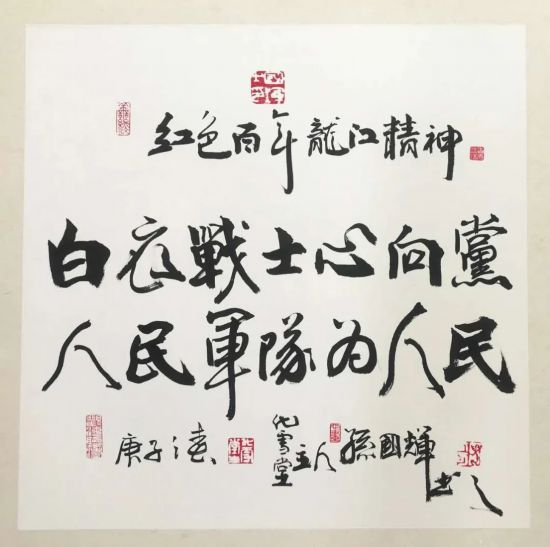 红色百年龍江精神
白衣戰士心向黨
人民軍隊为人民
庚子春
化雪堂主人
孫國輝书之